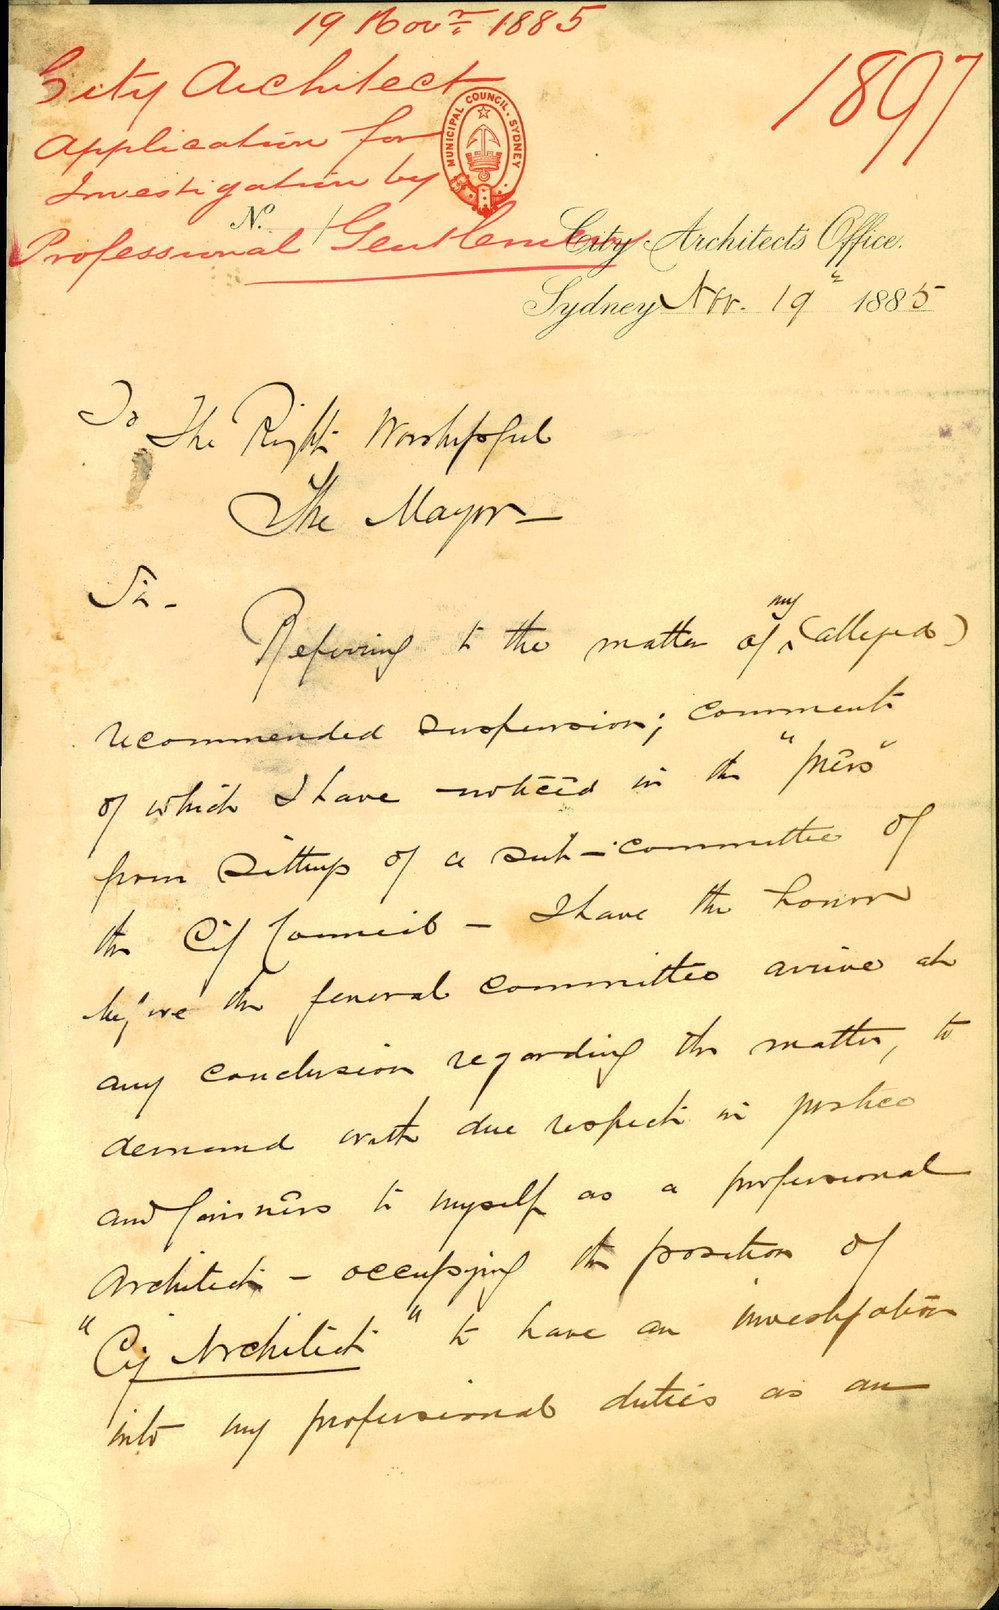 19 Novr 1885
City Architect
Application for
Investigation by
Professional Gentlemen
1897
MUNICIPAL COUNCIL. SYDNEY
No.
City Architect's Office.
Sydney Nov. 19th 1885
To The Right Worshipful
The Mayor —
Sir -
Referring to the matter of my (alleged)
recommended suspension; comments
of which I have noticed in the "press"
from sittings of a sub-committee of
the City Council - I have the honor
before the general committee arrive at
any conclusion regarding the matter, to
demand with due respect in justice
and fairness to myself as a professional
Architect - occupying the position of
"City Architect" to have an investigation
into my professional duties as an